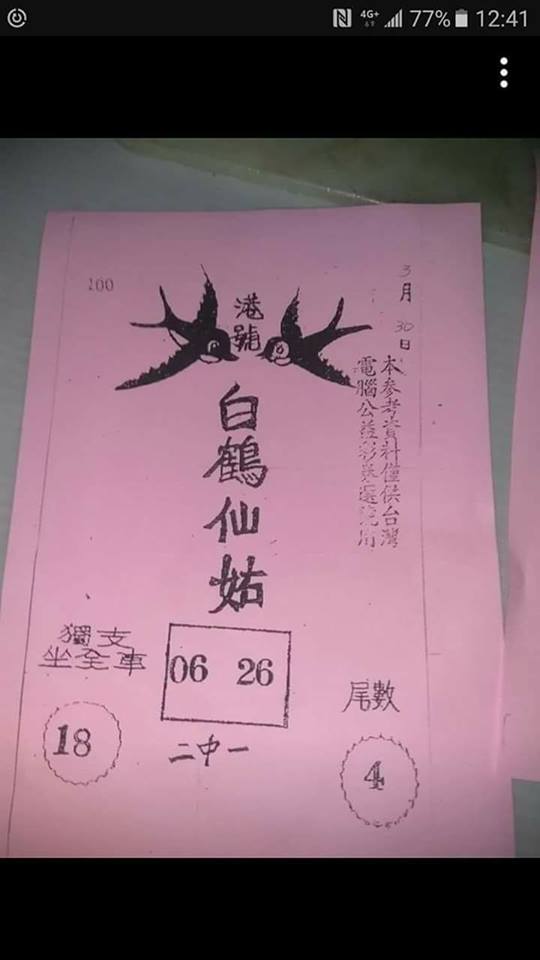 4G+
77%
12:41
100
3月30日
港號
本參考資料僅供台灣
電腦公益彩券選號用
白鶴仙姑
獨支
坐全車
18
06 26
二中一
尾數
4